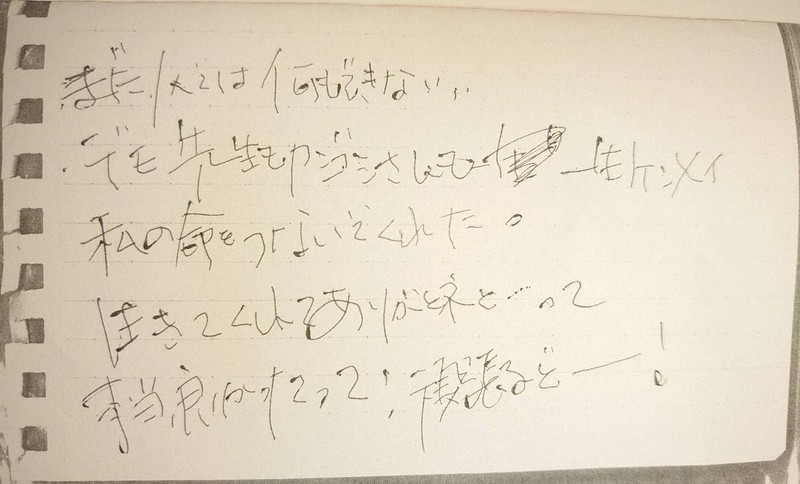 まだ1人では何もできない、、
デモ先生もカンゴシさんも 一生ケンメイ
私の命をつないでくれた。
生きてくれてありがとネと…って
本当良かったって! 頑張るどー!